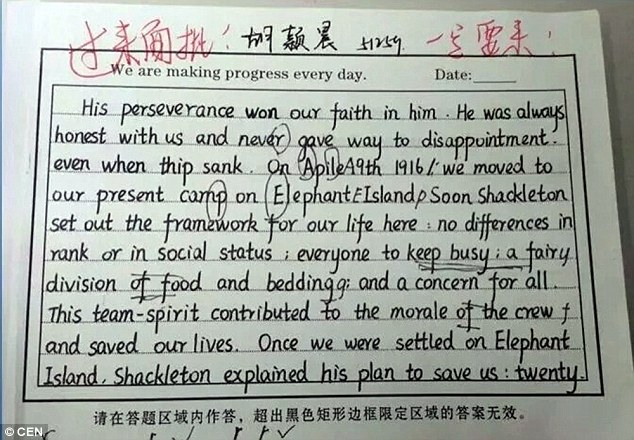 过来面批! 胡颖晨 51259 一定要来!
We are making progress every day. Date:
His perseverance won our faith in him. He was always
honest with us and never gave way to disappointment.
even when thip sank. On Apile 9th 1916/. we moved to
our present camp on Elephant Island, Soon Shackleton
set out the framework for our life here : no differences in
rank or in social status ; everyone to keep busy ; a fairy
division of food and beddingg; and a concern for all.
This team-spirit contributed to the morale of the crew
and saved our lives. Once we were settled on Elephant
Island. Shackleton explained his plan to save us : twenty-
请在答题区域内作答，超出黑色矩形边框限定区域的答案无效。
© CEN